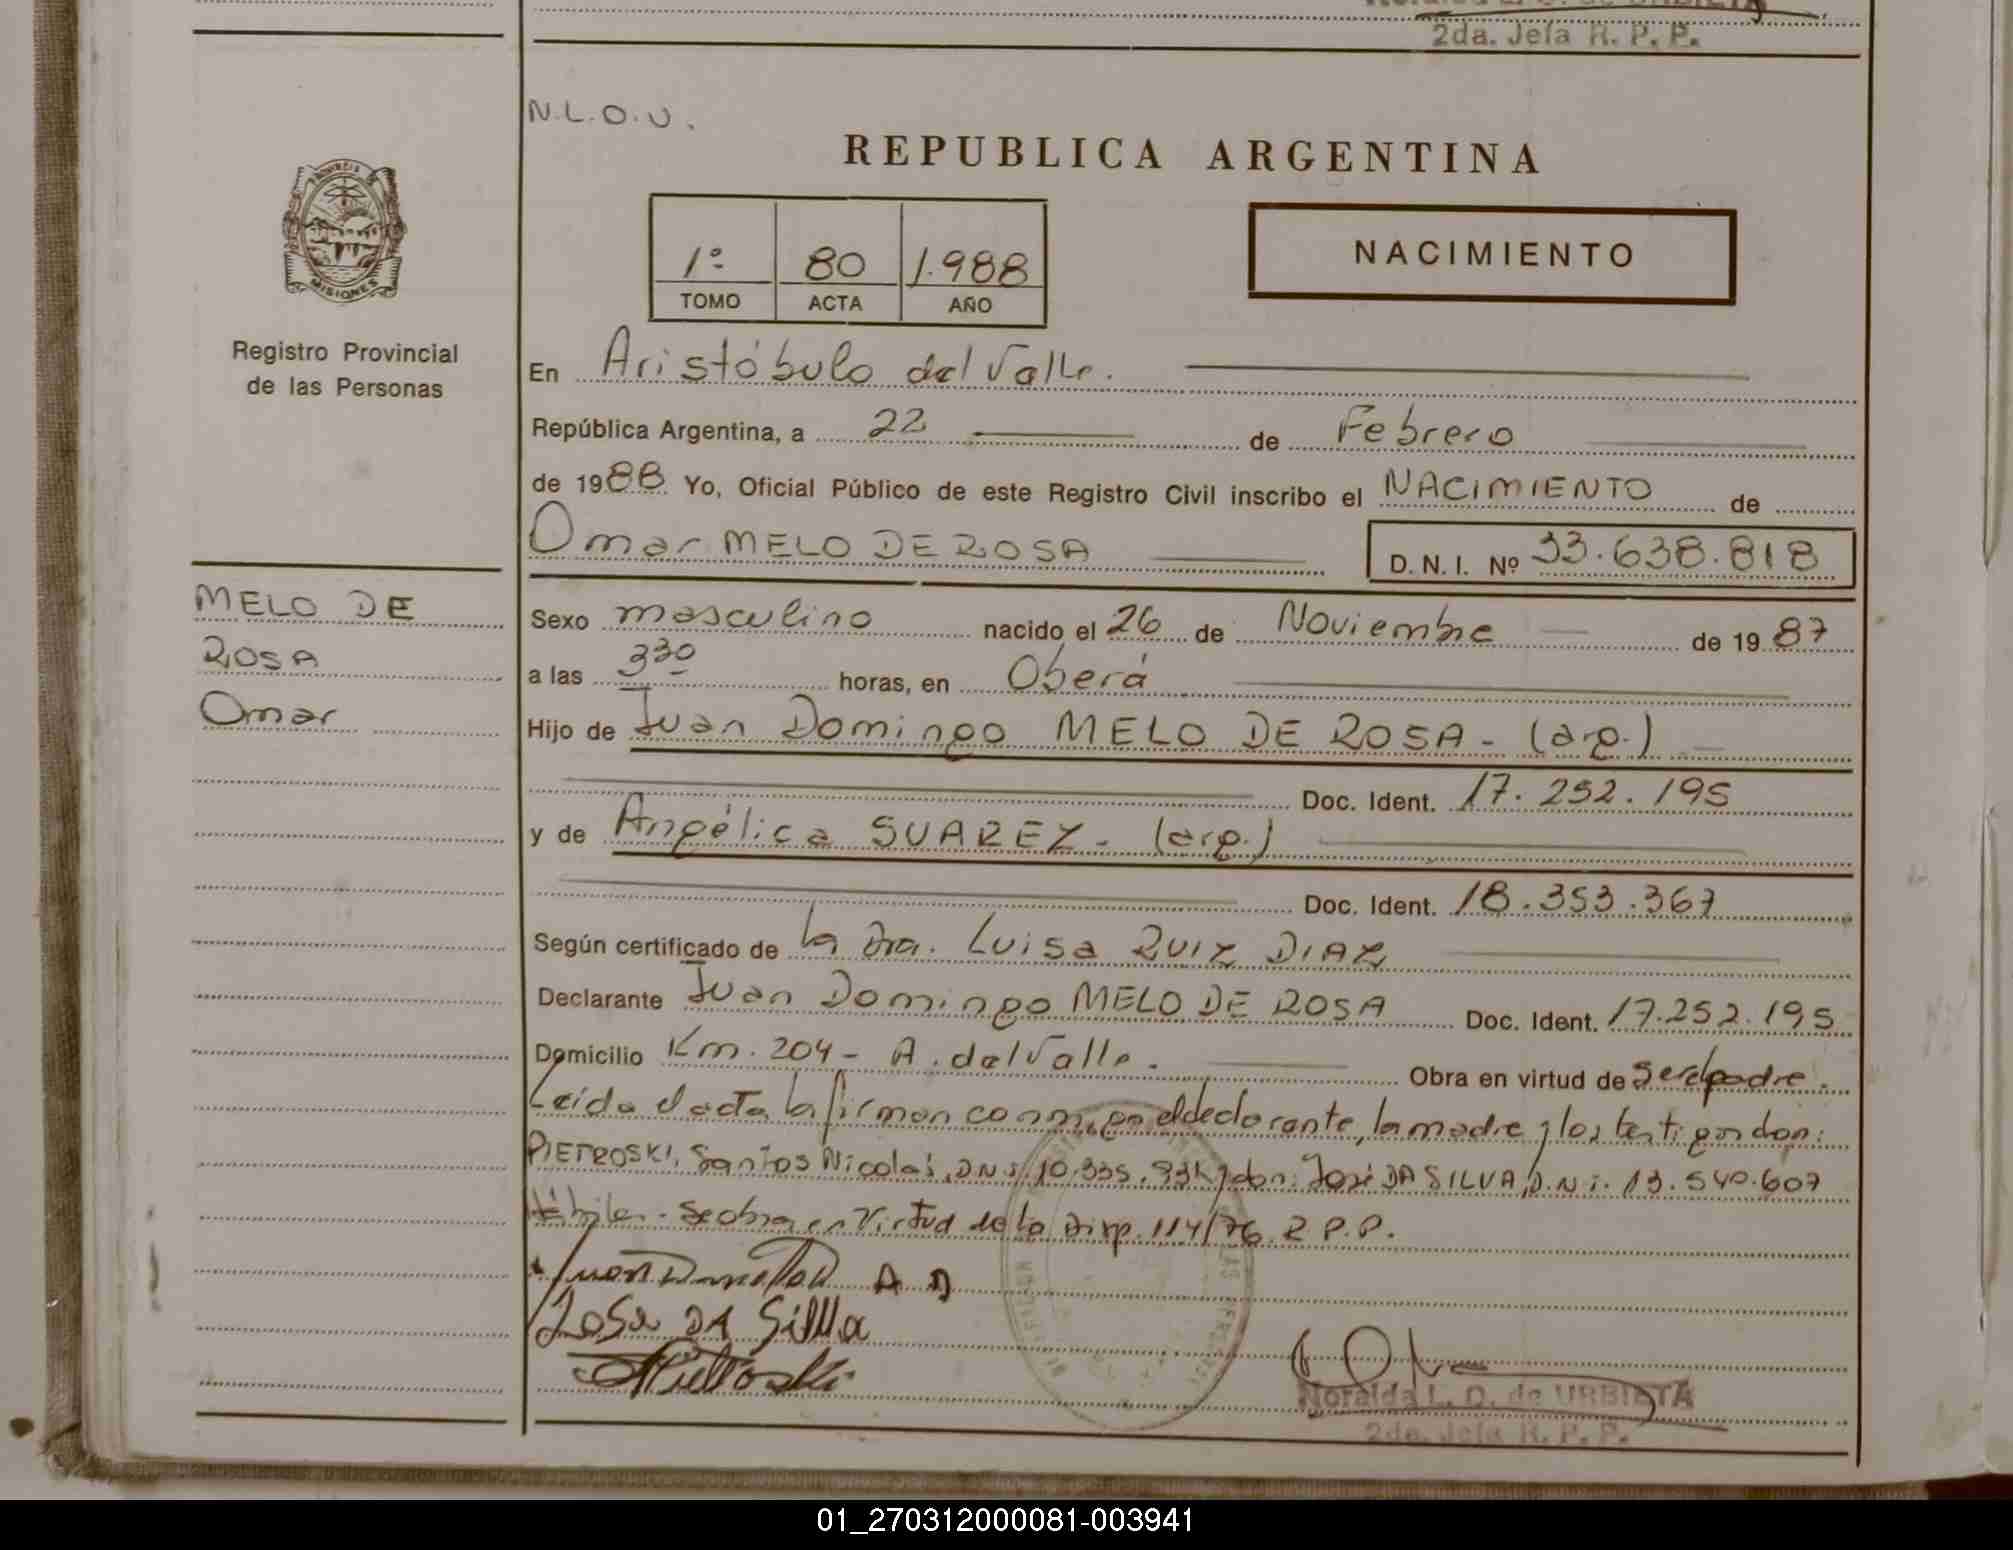 2da. Jefa R. P. P.
N.L.O.U.
REPUBLICA ARGENTINA
PROVINCIA DE
MISIONES
1º 80 1.988
TOMO ACTA AÑO
NACIMIENTO
Registro Provincial
de las Personas
En Aristóbulo del Valle.
República Argentina, a 22 de Febrero
de 1988 Yo, Oficial Público de este Registro Civil inscribo el NACIMIENTO de
Omar MELO DE ROSA D. N. I. Nº 33.638.818
MELO DE
ROSA
Omar
Sexo masculino nacido el 26 de Noviembre de 1987
a las 3 30 horas, en Oberá
Hijo de Juan Domingo MELO DE ROSA - (arg.)
Doc. Ident. 17.252.195
y de Angélica SUAREZ - (arg.)
Doc. Ident. 18.353.367
Según certificado de la Dra. Luisa RUIZ DIAZ
Declarante Juan Domingo MELO DE ROSA Doc. Ident. 17.252.195
Domicilio Km. 204 - A. del Valle. Obra en virtud de ser el padre.
Leída el acta la firman conmigo el declarante, la madre y los testigos don:
PIETROSKI, Santos Nicolás, D.N.I. y don: José DA SILVA, D.N.I. 13.540.607
Hábiles - Se obra en Virtud de la Disp. 114/76. R.P.P.
Josa DA Silva
Pietroski
Noralda L. D. de URBIETA
2da. Jefa R. P. P.
01_270312000081-003941